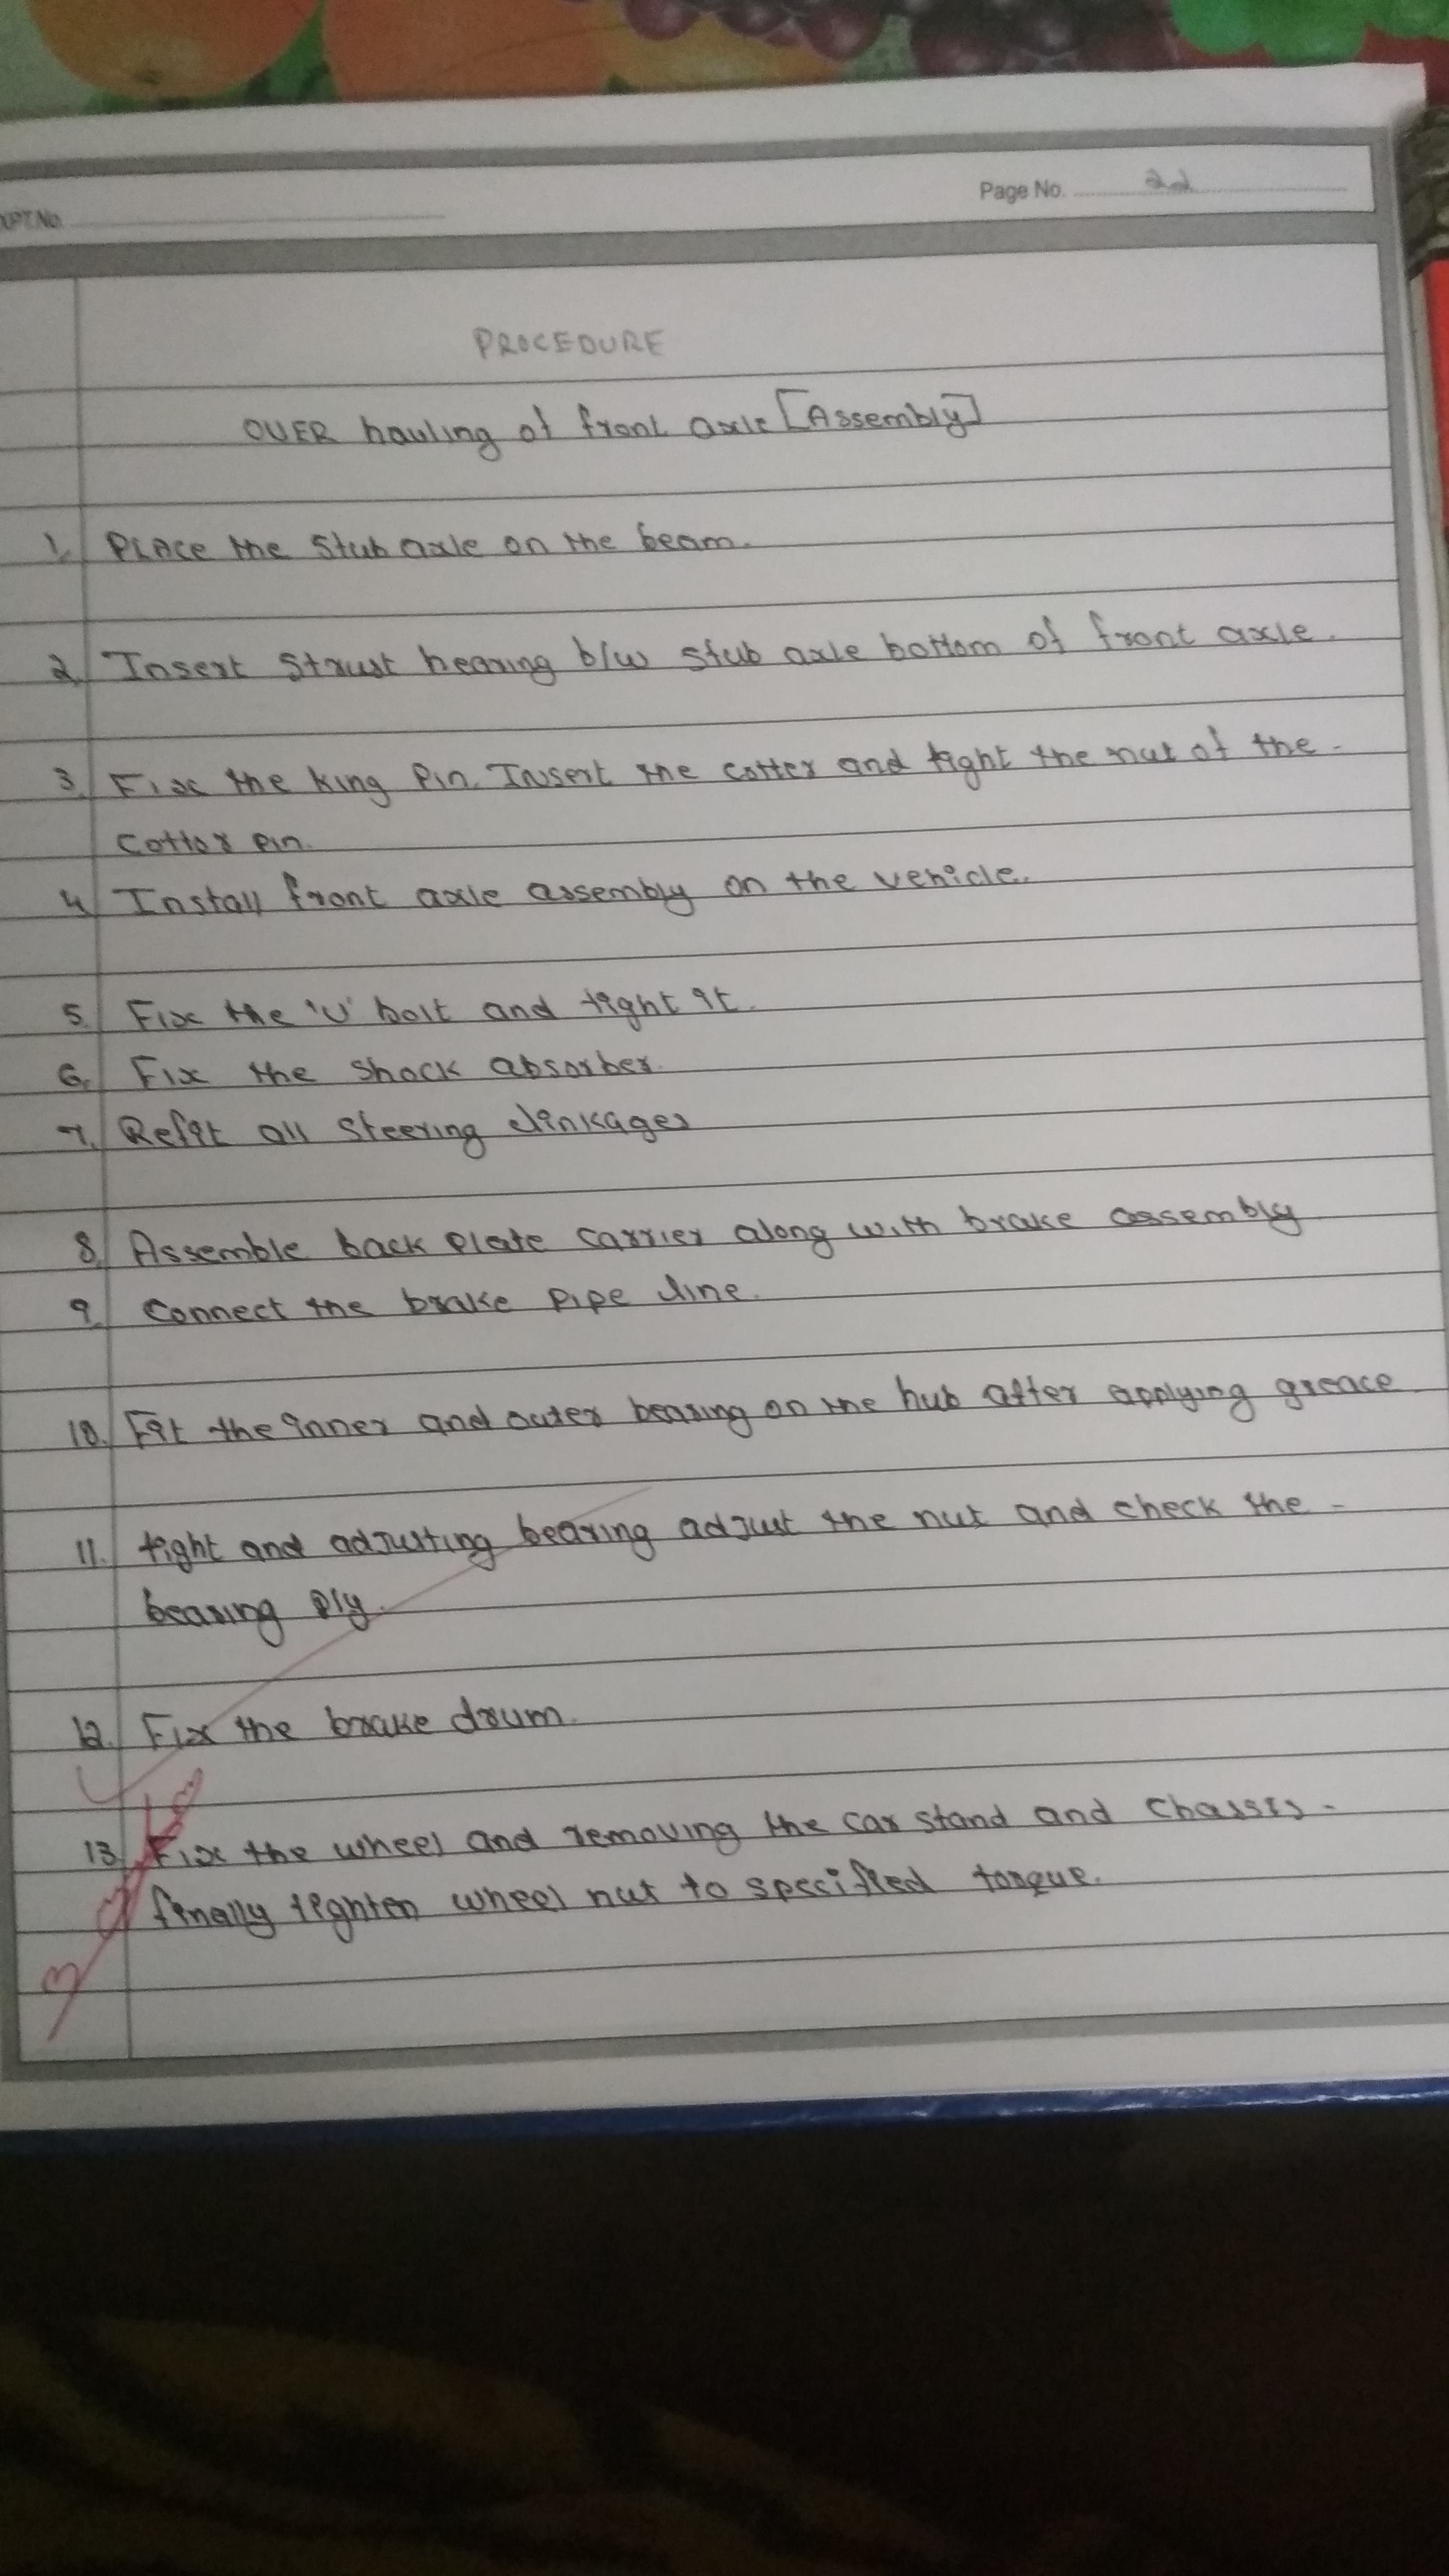 XPT.No.
Page No. 22
PROCEDURE
OVER hauling of front axle [Assembly]
1. Place the Stub axle on the beam.
2. Insert Strust bearing b/w stub axle bottom of front axle.
3. Fix the king Pin. Insert the cotter and tight the nut of the -
Cotter pin.
4. Install front axle assembly on the vehicle.
5. Fix the 'U' bolt and tight it.
6. Fix the shock absorber.
7. Refit all steering linkages
8. Assemble back plate carrier along with brake assembly
9. Connect the brake pipe line.
10. Fit the inner and outer bearing on the hub after applying greace
11. tight and adjusting bearing adjust the nut and check the -
bearing ply.
12. Fix the brake drum.
13. Fix the wheel and removing the car stand and chassis -
finally tighten wheel nut to specified torque.